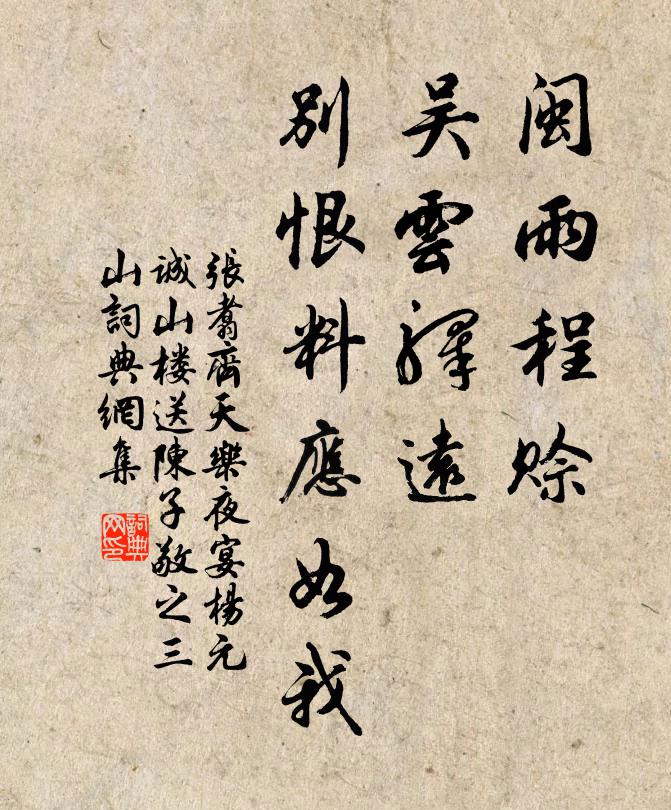 闽雨程赊
吴雲驛遠
别恨料應如我
張翥齊天樂夜宴楊元
诚山楼送陳子敬之三
山詞典網集
詞典
网印